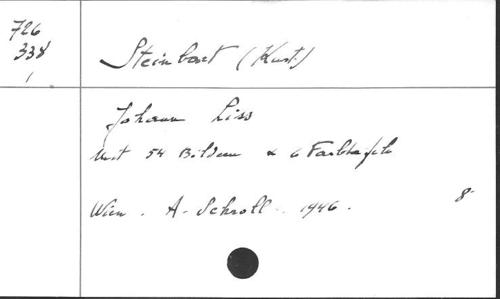 726
338
1
Steinbart (Kurt)
Johann Liss
Mit 54 Bildern & 6 Farbtafeln
Wien. A. Schroll. 1946.
8